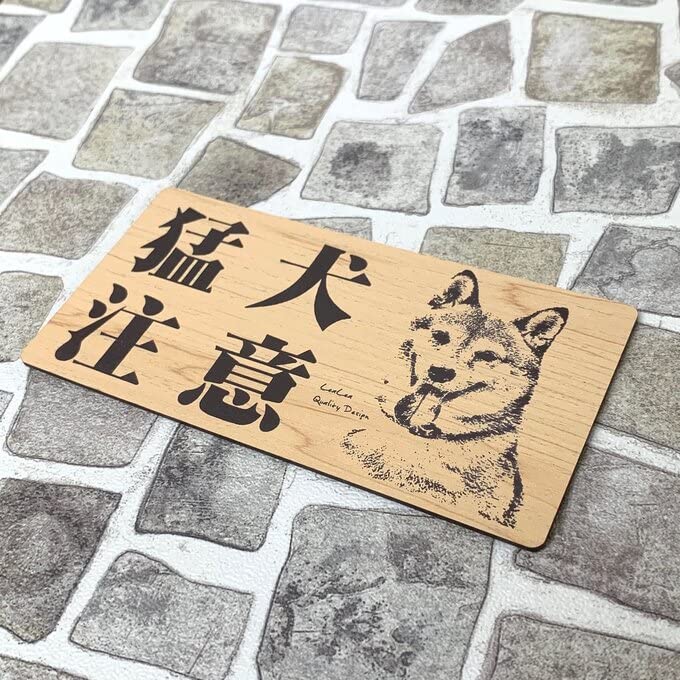 猛犬
注意
LenLen
Quality Design